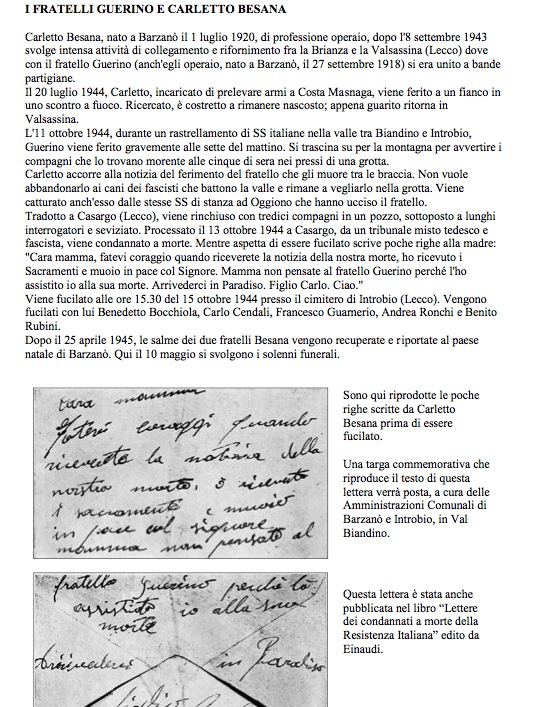 I FRATELLI GUERINO E CARLETTO BESANA
Carletto Besana, nato a Barzanò il 1 luglio 1920, di professione operaio, dopo l'8 settembre 1943
svolge intensa attività di collegamento e rifornimento fra la Brianza e la Valsassina (Lecco) dove
con il fratello Guerino (anch'egli operaio, nato a Barzanò, il 27 settembre 1918) si era unito a bande
partigiane.
Il 20 luglio 1944, Carletto, incaricato di prelevare armi a Costa Masnaga, viene ferito a un fianco in
uno scontro a fuoco. Ricercato, è costretto a rimanere nascosto; appena guarito ritorna in
Valsassina.
L'11 ottobre 1944, durante un rastrellamento di SS italiane nella valle tra Biandino e Introbio,
Guerino viene ferito gravemente alle sette del mattino. Si trascina su per la montagna per avvertire i
compagni che lo trovano morente alle cinque di sera nei pressi di una grotta.
Carletto accorre alla notizia del ferimento del fratello che gli muore tra le braccia. Non vuole
abbandonarlo ai cani dei fascisti che battono la valle e rimane a vegliarlo nella grotta. Viene
catturato anch'esso dalle stesse SS di stanza ad Oggiono che hanno ucciso il fratello.
Tradotto a Casargo (Lecco), viene rinchiuso con tredici compagni in un pozzo, sottoposto a lunghi
interrogatori e seviziato. Processato il 13 ottobre 1944 a Casargo, da un tribunale misto tedesco e
fascista, viene condannato a morte. Mentre aspetta di essere fucilato scrive poche righe alla madre:
"Cara mamma, fatevi coraggio quando riceverete la notizia della nostra morte, ho ricevuto i
Sacramenti e muoio in pace col Signore. Mamma non pensate al fratello Guerino perché l'ho
assistito io alla sua morte. Arrivederci in Paradiso. Figlio Carlo. Ciao."
Viene fucilato alle ore 15.30 del 15 ottobre 1944 presso il cimitero di Introbio (Lecco). Vengono
fucilati con lui Benedetto Bocchiola, Carlo Cendali, Francesco Guarnerio, Andrea Ronchi e Benito
Rubini.
Dopo il 25 aprile 1945, le salme dei due fratelli Besana vengono recuperate e riportate al paese
natale di Barzanò. Qui il 10 maggio si svolgono i solenni funerali.
cara mamma
coraggi quando
la notisia della
nostra morte, ò ricevuto
i sacramento e muoio
in pace col signore
mamma non pensate al
fratello Guerino perchè lò
assistito io alla sua
morte
in Paradiso
Sono qui riprodotte le poche
righe scritte da Carletto
Besana prima di essere
fucilato.
Una targa commemorativa che
riproduce il testo di questa
lettera verrà posta, a cura delle
Amministrazioni Comunali di
Barzanò e Introbio, in Val
Biandino.
Questa lettera è stata anche
pubblicata nel libro “Lettere
dei condannati a morte della
Resistenza Italiana” edito da
Einaudi.